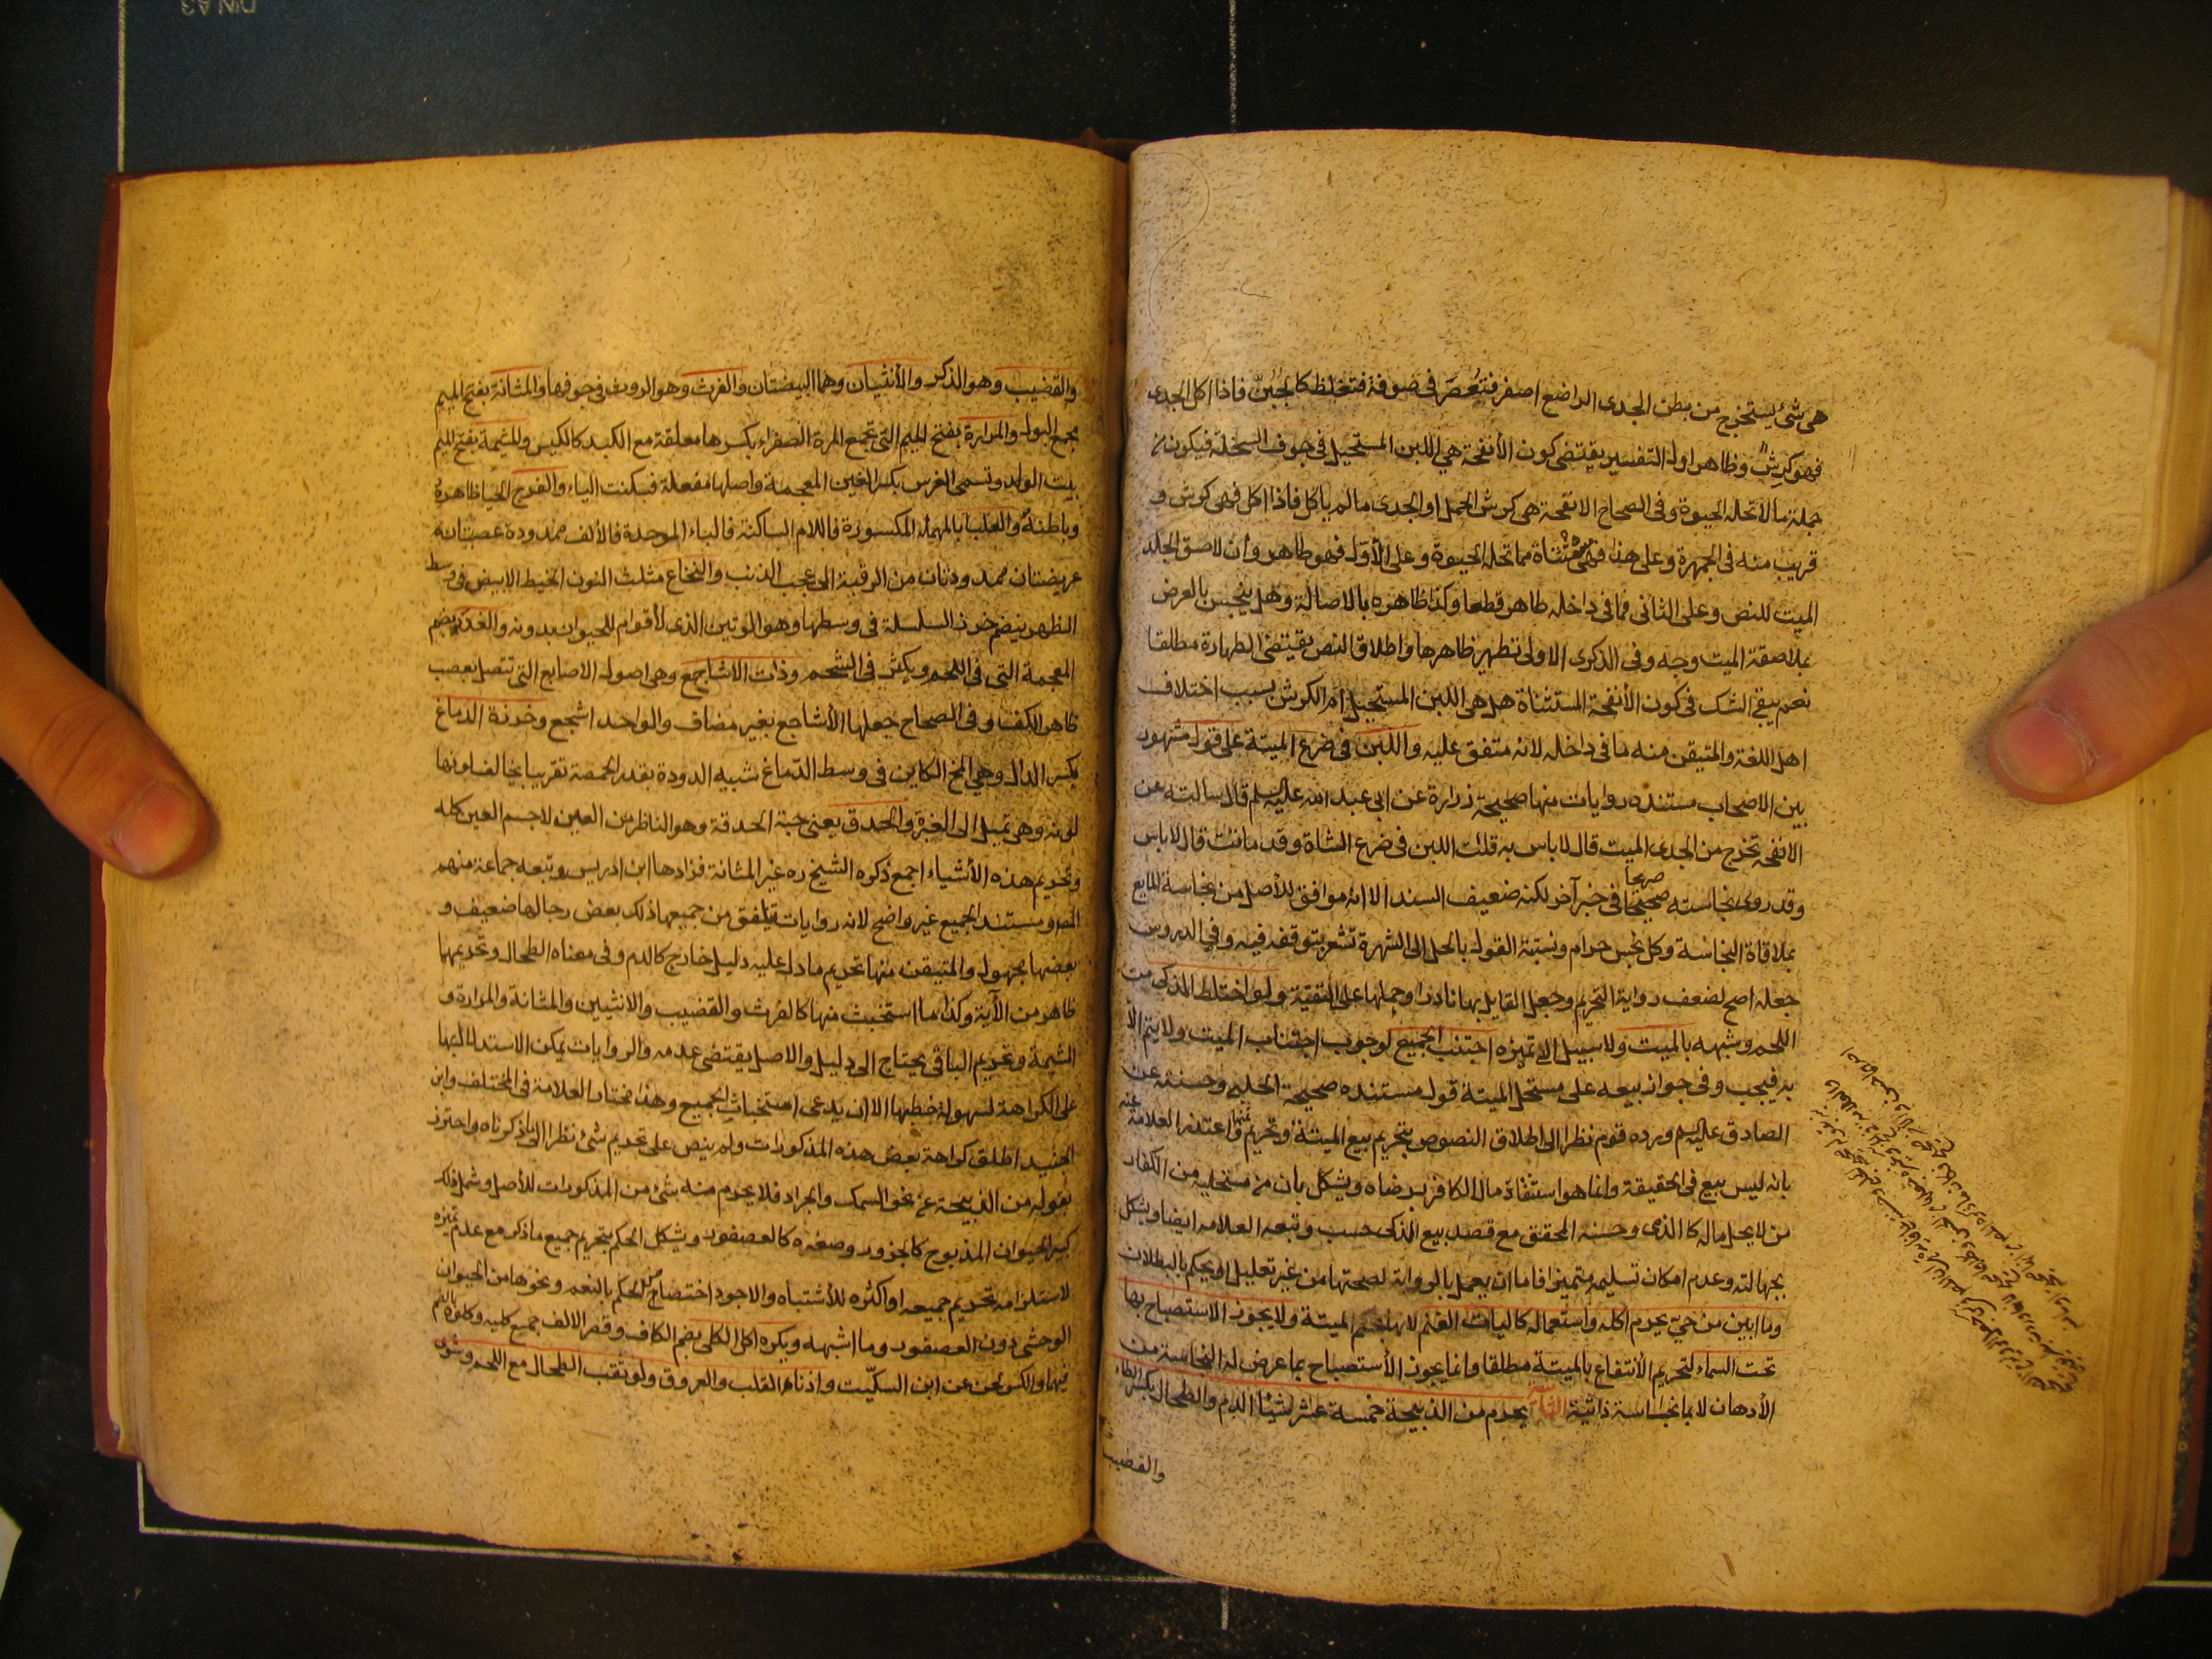 هى شئ يستخرج من بطن الجدى الراضع اصفر فيعصر فى صوفة فتغلظ كالجبن فاذا اكل الجدى
فهو كرش وظاهر اول التفسير يقتضى كون الأنفحة هى اللبن المستحيل فى جوف السخلة فيكون من
جملة ما لا تحله الحيوة وفى الصحاح الانفحة هى كرش الحمل او الجدى ما لم ياكل فاذا اكل فهى كرش و
قريب منه فى الجمهرة وعلى هذا فهى مستثناة مما تحله الحيوة وعلى الأول فهو طاهر وان لاصق الجلد
الميت للنص وعلى الثانى فما فى داخله طاهر قطعا وكذا ظاهره بالاصالة وهل ينجس بالعرض
بملاصقة الميت وجه وفى الذكرى الاولى تطهير ظاهرها واطلاق النص يقتضى الطهارة مطلقا
نعم يبقى الشك فى كون الأنفحة المستثناة هل هى اللبن المستحيل ام الكرش بسبب اختلاف
اهل اللغة والمتيقن منه ما فى داخله لانه متفق عليه واللبن فى ضرع الميتة على قول مشهور
بين الاصحاب مستنده روايات منها صحيحة زرارة عن ابى عبد الله عليه السلم قال سالته عن
الانفحة تخرج من الجدى الميت قال لا باس به قلت اللبن فى ضرع الشاة وقد ماتت قال لا باس
وقد روى نجاسته صريحا فى خبر آخر لكنه ضعيف السند الا انه موافق للأصل من نجاسة المايع
بملاقاة النجاسة وكل نجس حرام ونسبة القول بالحل الى الشهرة تشعر بتوقفه فيه وفى الدروس
جعله اصح لضعف رواية التحريم وجعل القايل بها نادرا وحملها على التقية ولو اختلط الذكى من
اللحم وشبهه بالميت ولا سبيل الى تميزه اجتنب الجميع لوجوب اجتناب الميت ولا يتم الا
به فيجب وفى جواز بيعه على مستحل الميتة قول مستنده صحيحة الحلبى وحسنته عن
الصادق عليه السلم ورده قوم نظرا الى اطلاق النصوص بتحريم بيع الميتة وتحريم ثمنها واعتذر العلامة عنه
بانه ليس بيع فى الحقيقة وانما هو استنقاذ مال الكافر برضاه ويشكل بان من مستحليه من الكفار
من لا يحل ماله كالذمى وحسنه المحقق مع قصد بيع الذكى حسب وتبعه العلامة ايضا ويشكل
بجهالته وعدم امكان تسليمه متميزا فاما ان يعمل بالرواية لصحتها من غير تعليل او يحكم بالبطلان
وما ابين من حى يحرم اكله واستعماله كاليات الغنم لانها بحكم الميتة ولا يجوز الاستصباح بها
تحت السماء لتحريم الأنتفاع بالميتة مطلقا وانما يجوز الأستصباح بما عرض له النجاسة من
الأدهان لا بما نجاسة ذاتية الثامنة يحرم من الذبيحة خمسة عشر شيئا الدم والطحال بكسر الطاء
والقضيب
والقضيب وهو الذكر والأنثيان وهما البيضتان والفرث وهو الروث فى جوفها والمثانة بفتح الميم
مجمع البول والمرارة بفتح الميم التى تجمع المرة الصفراء بكسرها معلقة مع الكبد كالكيس والمشيمة بفتح الميم
بيت الولد وتسمى الغرس بكسر الغين المعجمة واصلها مفعلة فسكنت الياء والفرج الحيا ظاهرة
وباطنة والعلبا بالمهملة المكسورة فاللام الساكنة فالباء الموحدة فالألف ممدودة عصبتان
عريضتان ممدودتان من الرقبة الى عجب الذنب والنخاع مثلث النون الخيط الابيض فى وسط
الظهر ينضم خرز السلسلة فى وسطها وهو الوتين الذى لا قوام للحيوان بدونه والغدد بضم
المعجمة التى فى اللحم ويكثر فى الشحم وذات الاشاجع وهى اصول الاصابع التى تتصل بعصب
ظاهر الكف وفى الصحاح جعلها الأشاجع بغير مضاف والواحد اشجع وخرزة الدماغ
بكسر الدال وهى المخ الكاين فى وسط الدماغ شبيه الدودة بقدر الحمصة تقريبا يخالف لونها
لونه وهى تميل الى الغبرة والحدق يعنى حبة الحدقة وهو الناظر من العين لا جسم العين كله
وتحريم هذه الأشياء اجمع ذكره الشيخ ره غير المثانة فزادها ابن ادريس وتبعه جماعة منهم
المص ومستند الجميع غير واضح لانه روايات يتلفق من جميعها ذلك بعض رجالها ضعيف و
بعضها مجهول والمتيقن منها تحريم ما دل عليه دليل خارج كالدم وفى معناه الطحال وتحريمها
ظاهر من الآية وكذا ما استخبث منها كالفرث والقضيب والانثيين والمثانة والمرارة و
المشيمة وتحريم الباقى يحتاج الى دليل والاصل يقتضى عدمه والروايات يمكن الاستدلال بها
على الكراهة لسهولة خطبها الا ان يدعى استخباث الجميع وهذا مختار العلامة فى المختلف وابن
الجنيد اطلق كراهة بعض هذه المذكورات ولم ينص على تحريم شئ نظرا الى ما ذكرناه واحترز
بقوله من الذبيحة عن نحو السمك والجراد فلا يحرم منه شئ من المذكورات للأصل وشمل ذلك
كبير الحيوان المذبوح كالجزور وصغيره كالعصفور ويشكل الحكم بتحريم جميع ما ذكر مع عدم تميزه
لاستلزامه تحريم جميعه او اكثره للأشتباه والاجود اختصاص الحكم بالنعم ونحوها من الحيوان
الوحشى دون العصفور وما اشبهه ويكره اكل الكلى بضم الكاف وقصر الالف جمع كلية وكلوة بالضم
فيهما والكسر لحن عن ابن السكيت واذنا القلب والعروق ولو ثقب الطحال مع اللحم وشوى